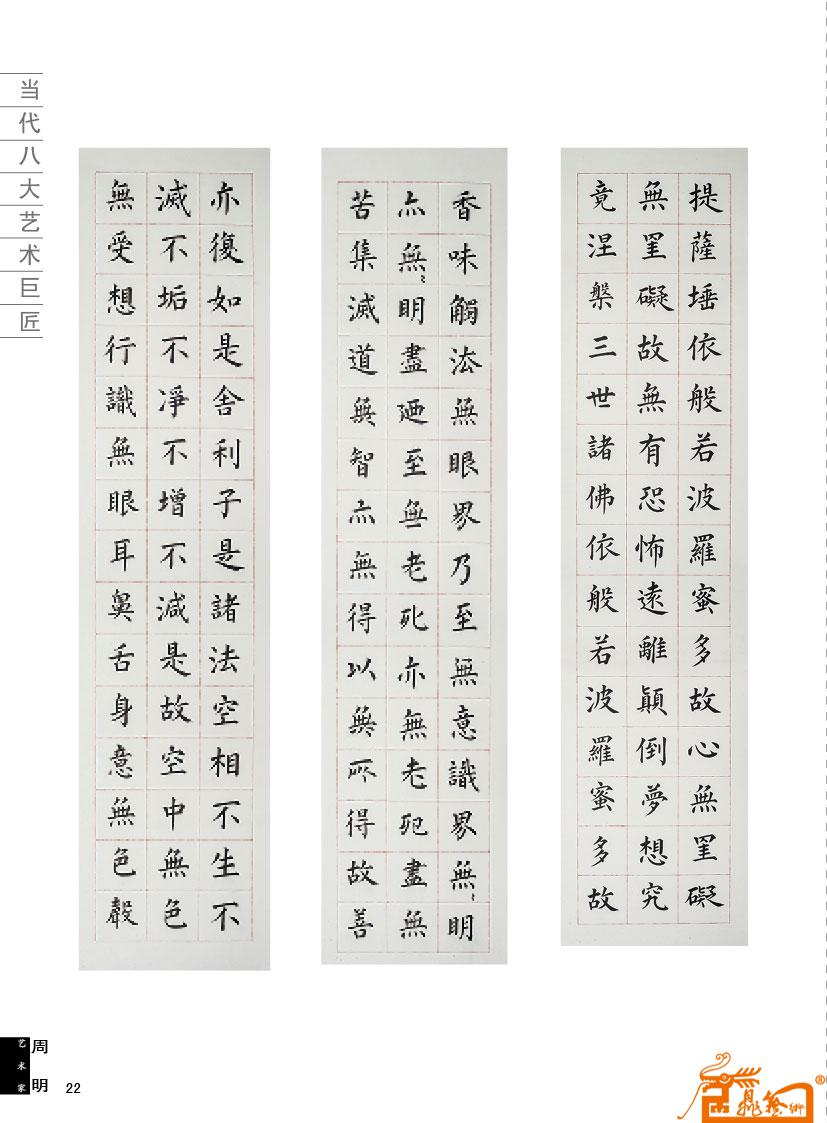 当代八大艺术巨匠
亦復如是舍利子是諸法空相不生不
滅不垢不淨不增不減是故空中無色
無受想行識無眼耳鼻舌身意無色聲
香味觸法無眼界乃至無意識界無〻明
亦無〻明盡廼至無老死亦無老死盡無
苦集滅道無智亦無得以無所得故善
提薩埵依般若波羅蜜多故心無罣礙
無罣礙故無有恐怖遠離顛倒夢想究
竟涅槃三世諸佛依般若波羅蜜多故
艺术家
周明
22
藝術
®